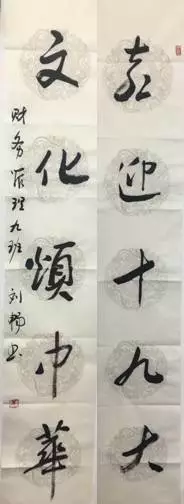 喜迎十九大
文化頌中華
财务管理九班 刘畅书